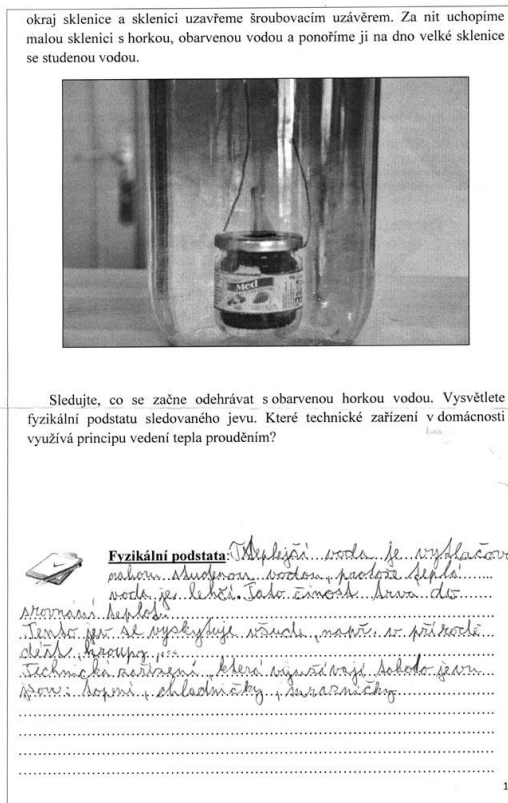 okraj sklenice a sklenici uzavřeme šroubovacím uzávěrem. Za nit uchopíme
malou sklenici s horkou, obarvenou vodou a ponoříme ji na dno velké sklenice
se studenou vodou.
Med
Sledujte, co se začne odehrávat s obarvenou horkou vodou. Vysvětlete
fyzikální podstatu sledovaného jevu. Které technické zařízení v domácnosti
využívá principu vedení tepla prouděním?
Fyzikální podstata: Teplejší voda je vytlačov
studenou vodou, protože teplá
voda je lehčí. Tato činost trva do
srovnání teplot.
Tento jev se vyskytuje všude, např. v přírodě
déšť, kroupy, ...
Technická zařízení, která využívají tohoto jevu
jsou: topení, chladničky, mrazničky
1